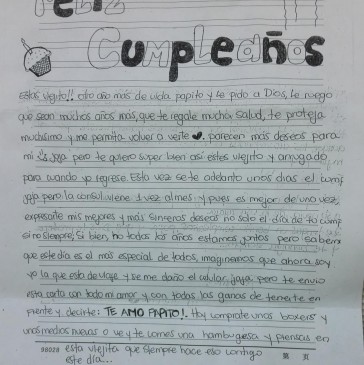 FELIZ
CUMPLEAÑOS
Estas viejito!! otro año más de vida papito y le pido a Dios, le ruego
que sean muchos años más, que te regale mucha salud, te proteja
muchísimo y me permita volver a verte ♥. parecen más deseos para
mi jaja pero te quiero super bien así estes viejito y arrugado
para cuando yo regrese. Esta vez se te adelanto unos días el cump
jaja pero la consul viene 1 vez al mes y pues es mejor de una vez
expresarte mis mejores y más sinceros deseos no solo el día de tu cump
si no siempre, Si bien, no todos los años estamos juntos pero sabemos
que este día es el más especial de todos, imaginemos que ahora soy
yo la que esta de viaje y se me daño el celular, jaja, pero te envio
esta carta con todo mi amor y con todas las ganas de tenerte en
frente y decirte: TE AMO PAPITO!. Hoy comprate unos boxers y
unos medias nuevas o ve y te comes una hamburguesa y piensas en
88028 esta viejita que siempre hace eso contigo
este día...